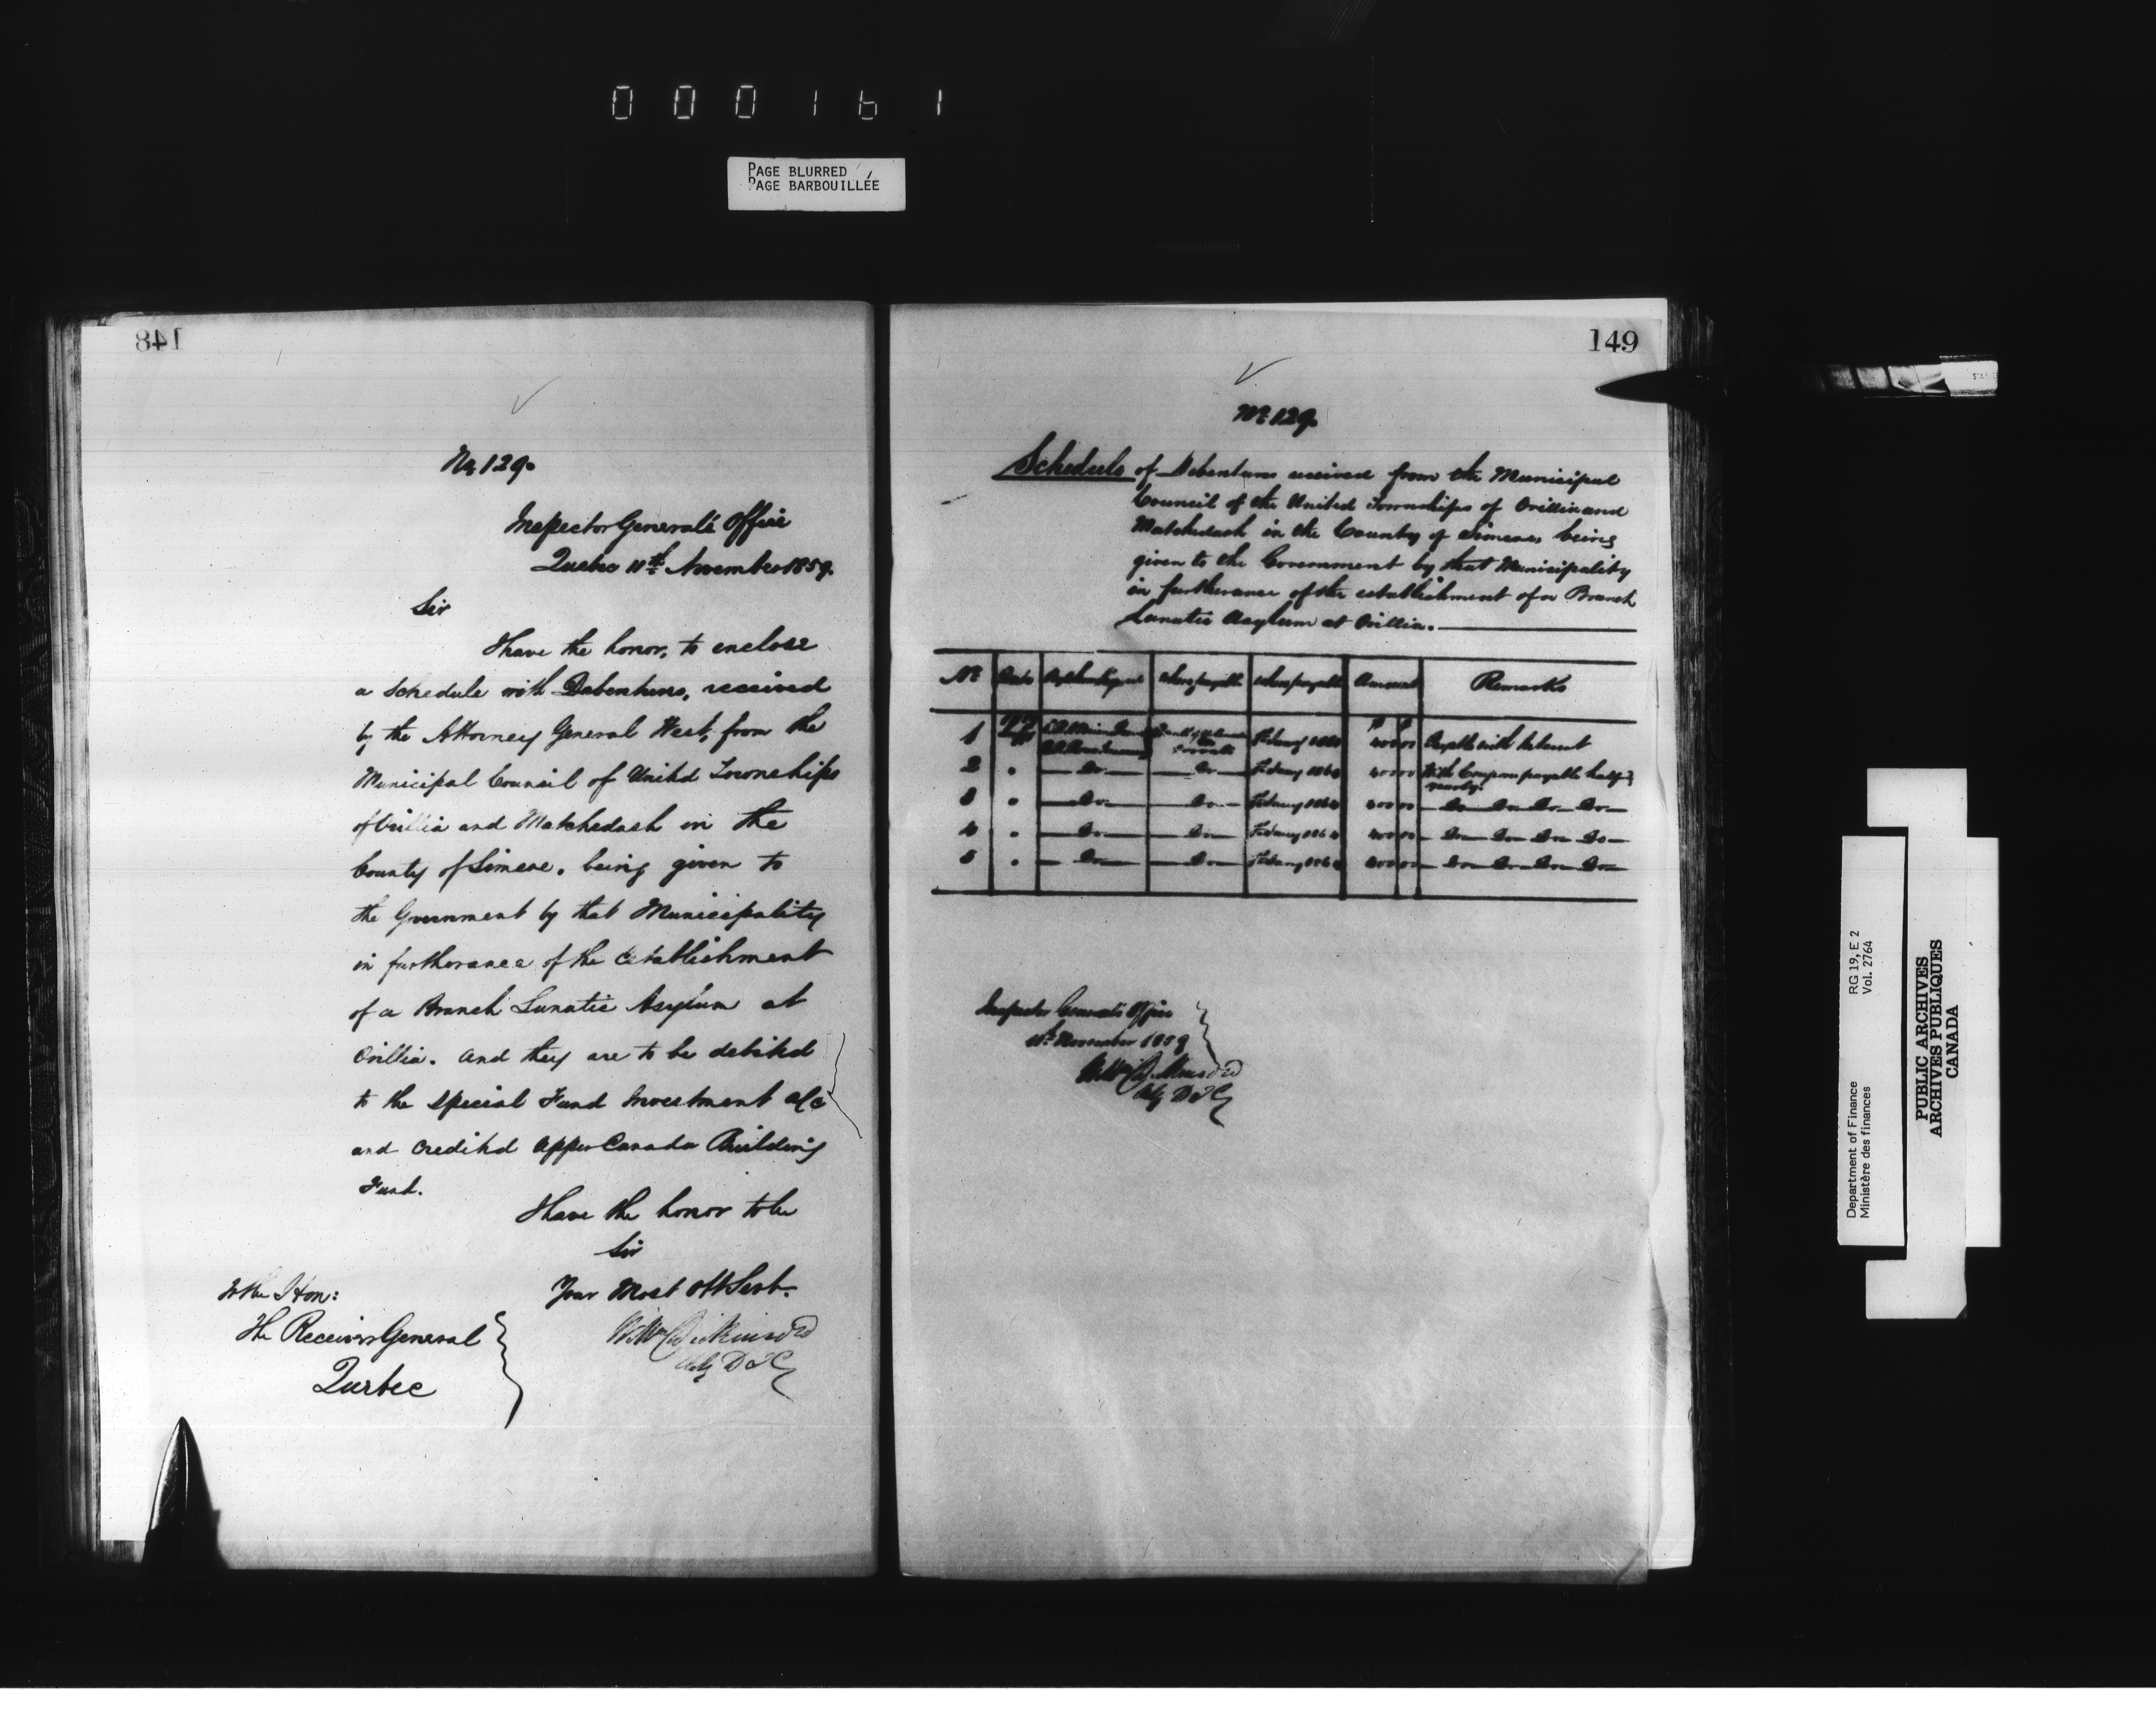 000161
PAGE BLURRED
PAGE BARBOUILLÉE
148
No. 129.
Inspector General's Office
Quebec 11th November 1859.
Sir
I have the honor, to enclose
a Schedule with Debentures, received
by the Attorney General West, from the
Municipal Council of United Townships
of Orillia and Matchedash in the
County of Simcoe. being given to
the Government by that Municipality
in furtherance of the establishment
of a Branch Lunatic Asylum at
Orillia. And they are to be debited
to the Special Fund Investment a/c
and credited Upper Canada Building
Fund.
I have the honor to be
Sir
Your Most Obt Servt.
Wm Dickinson
Actg D I G
To the Hon:
The Receiver General
Quebec
149
No. 129.
Schedule of Debentures received from the Municipal
Council of the United Townships of Orillia and
Matchedash in the County of Simcoe being
given to the Government by that Municipality
in furtherance of the establishment of a Branch
Lunatic Asylum at Orillia.
No. Date By whom signed Where payable When payable Amount Remarks
1 Payable with Interest
2 " Do Do With Coupons payable half
yearly.
3 " Do Do Do Do Do Do
4 " Do Do Do Do Do Do
5 " Do Do Do Do Do Do
Inspector General's Office
11th November 1859
Wm Dickinson
Actg D I G
Department of Finance RG 19, E 2
Ministère des finances Vol. 2764
PUBLIC ARCHIVES
ARCHIVES PUBLIQUES
CANADA